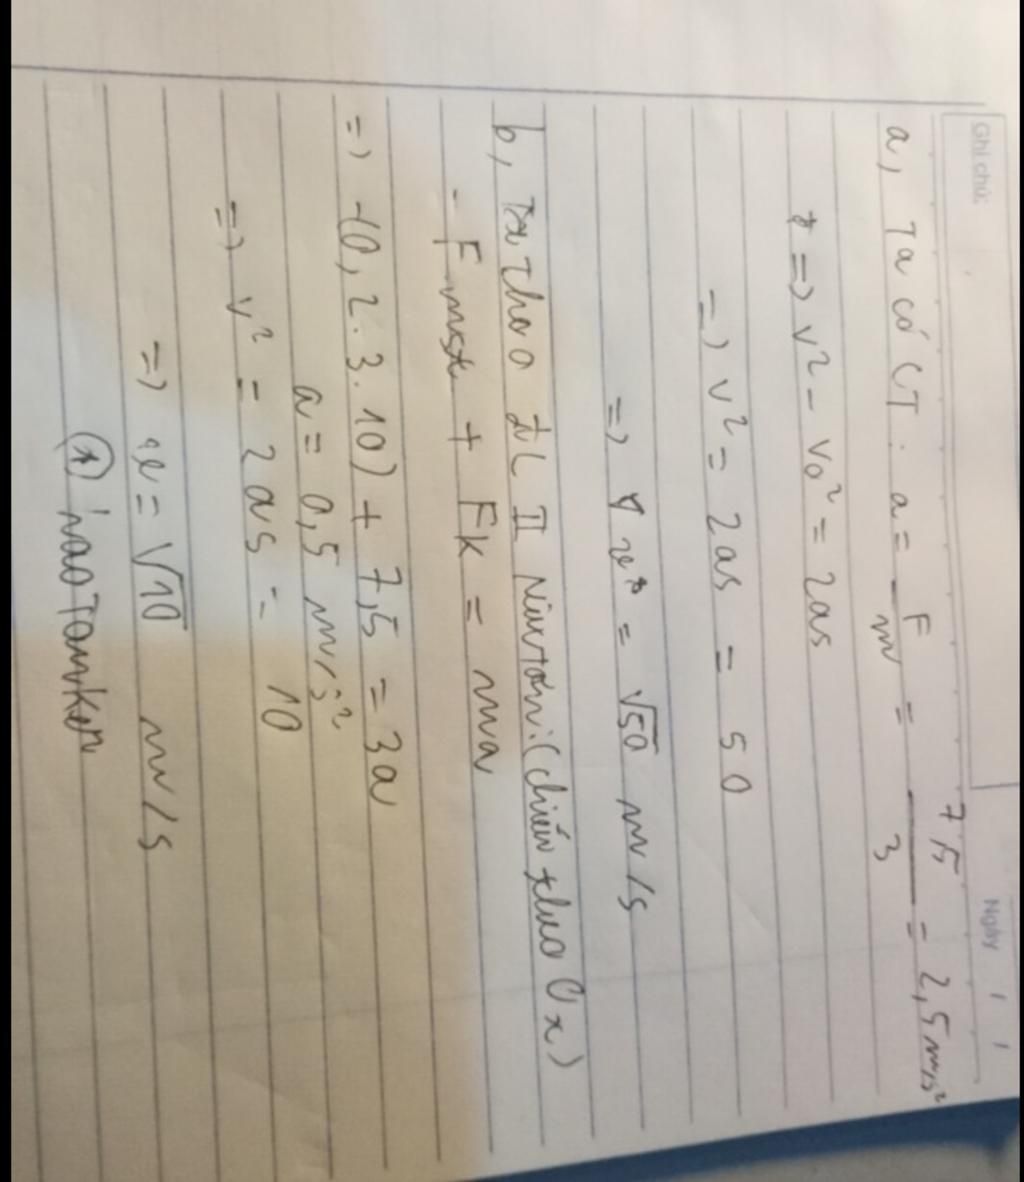 Ghi chú: Ngày / /
a, Ta có CT: a = F/m = 7,5/3 = 2,5 m/s²
=> v² - v₀² = 2as
=> v² = 2as = 50
=> v = √50 m/s
b, Ta theo ĐL II Niuton: (chiếu theo Ox)
- Fmst + Fk = ma
=> -(0,2.3.10) + 7,5 = 3a
a = 0,5 m/s²
=> v² = 2as = 10
=> v = √10 m/s